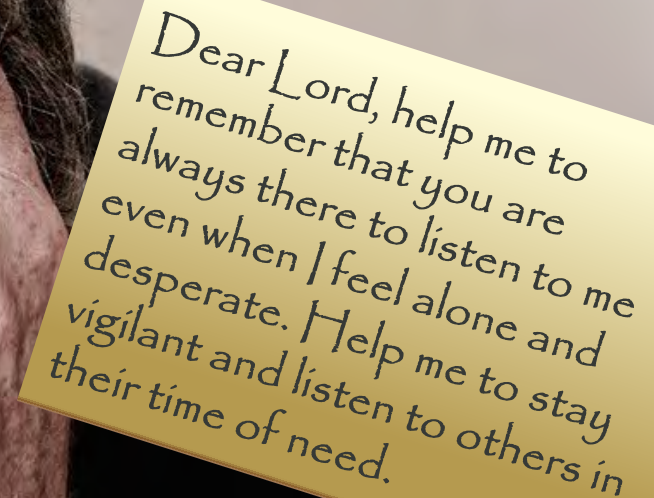 Dear Lord, help me to
remember that you are
always there to listen to me
even when I feel alone and
desperate. Help me to stay
vigilant and listen to others in
their time of need.